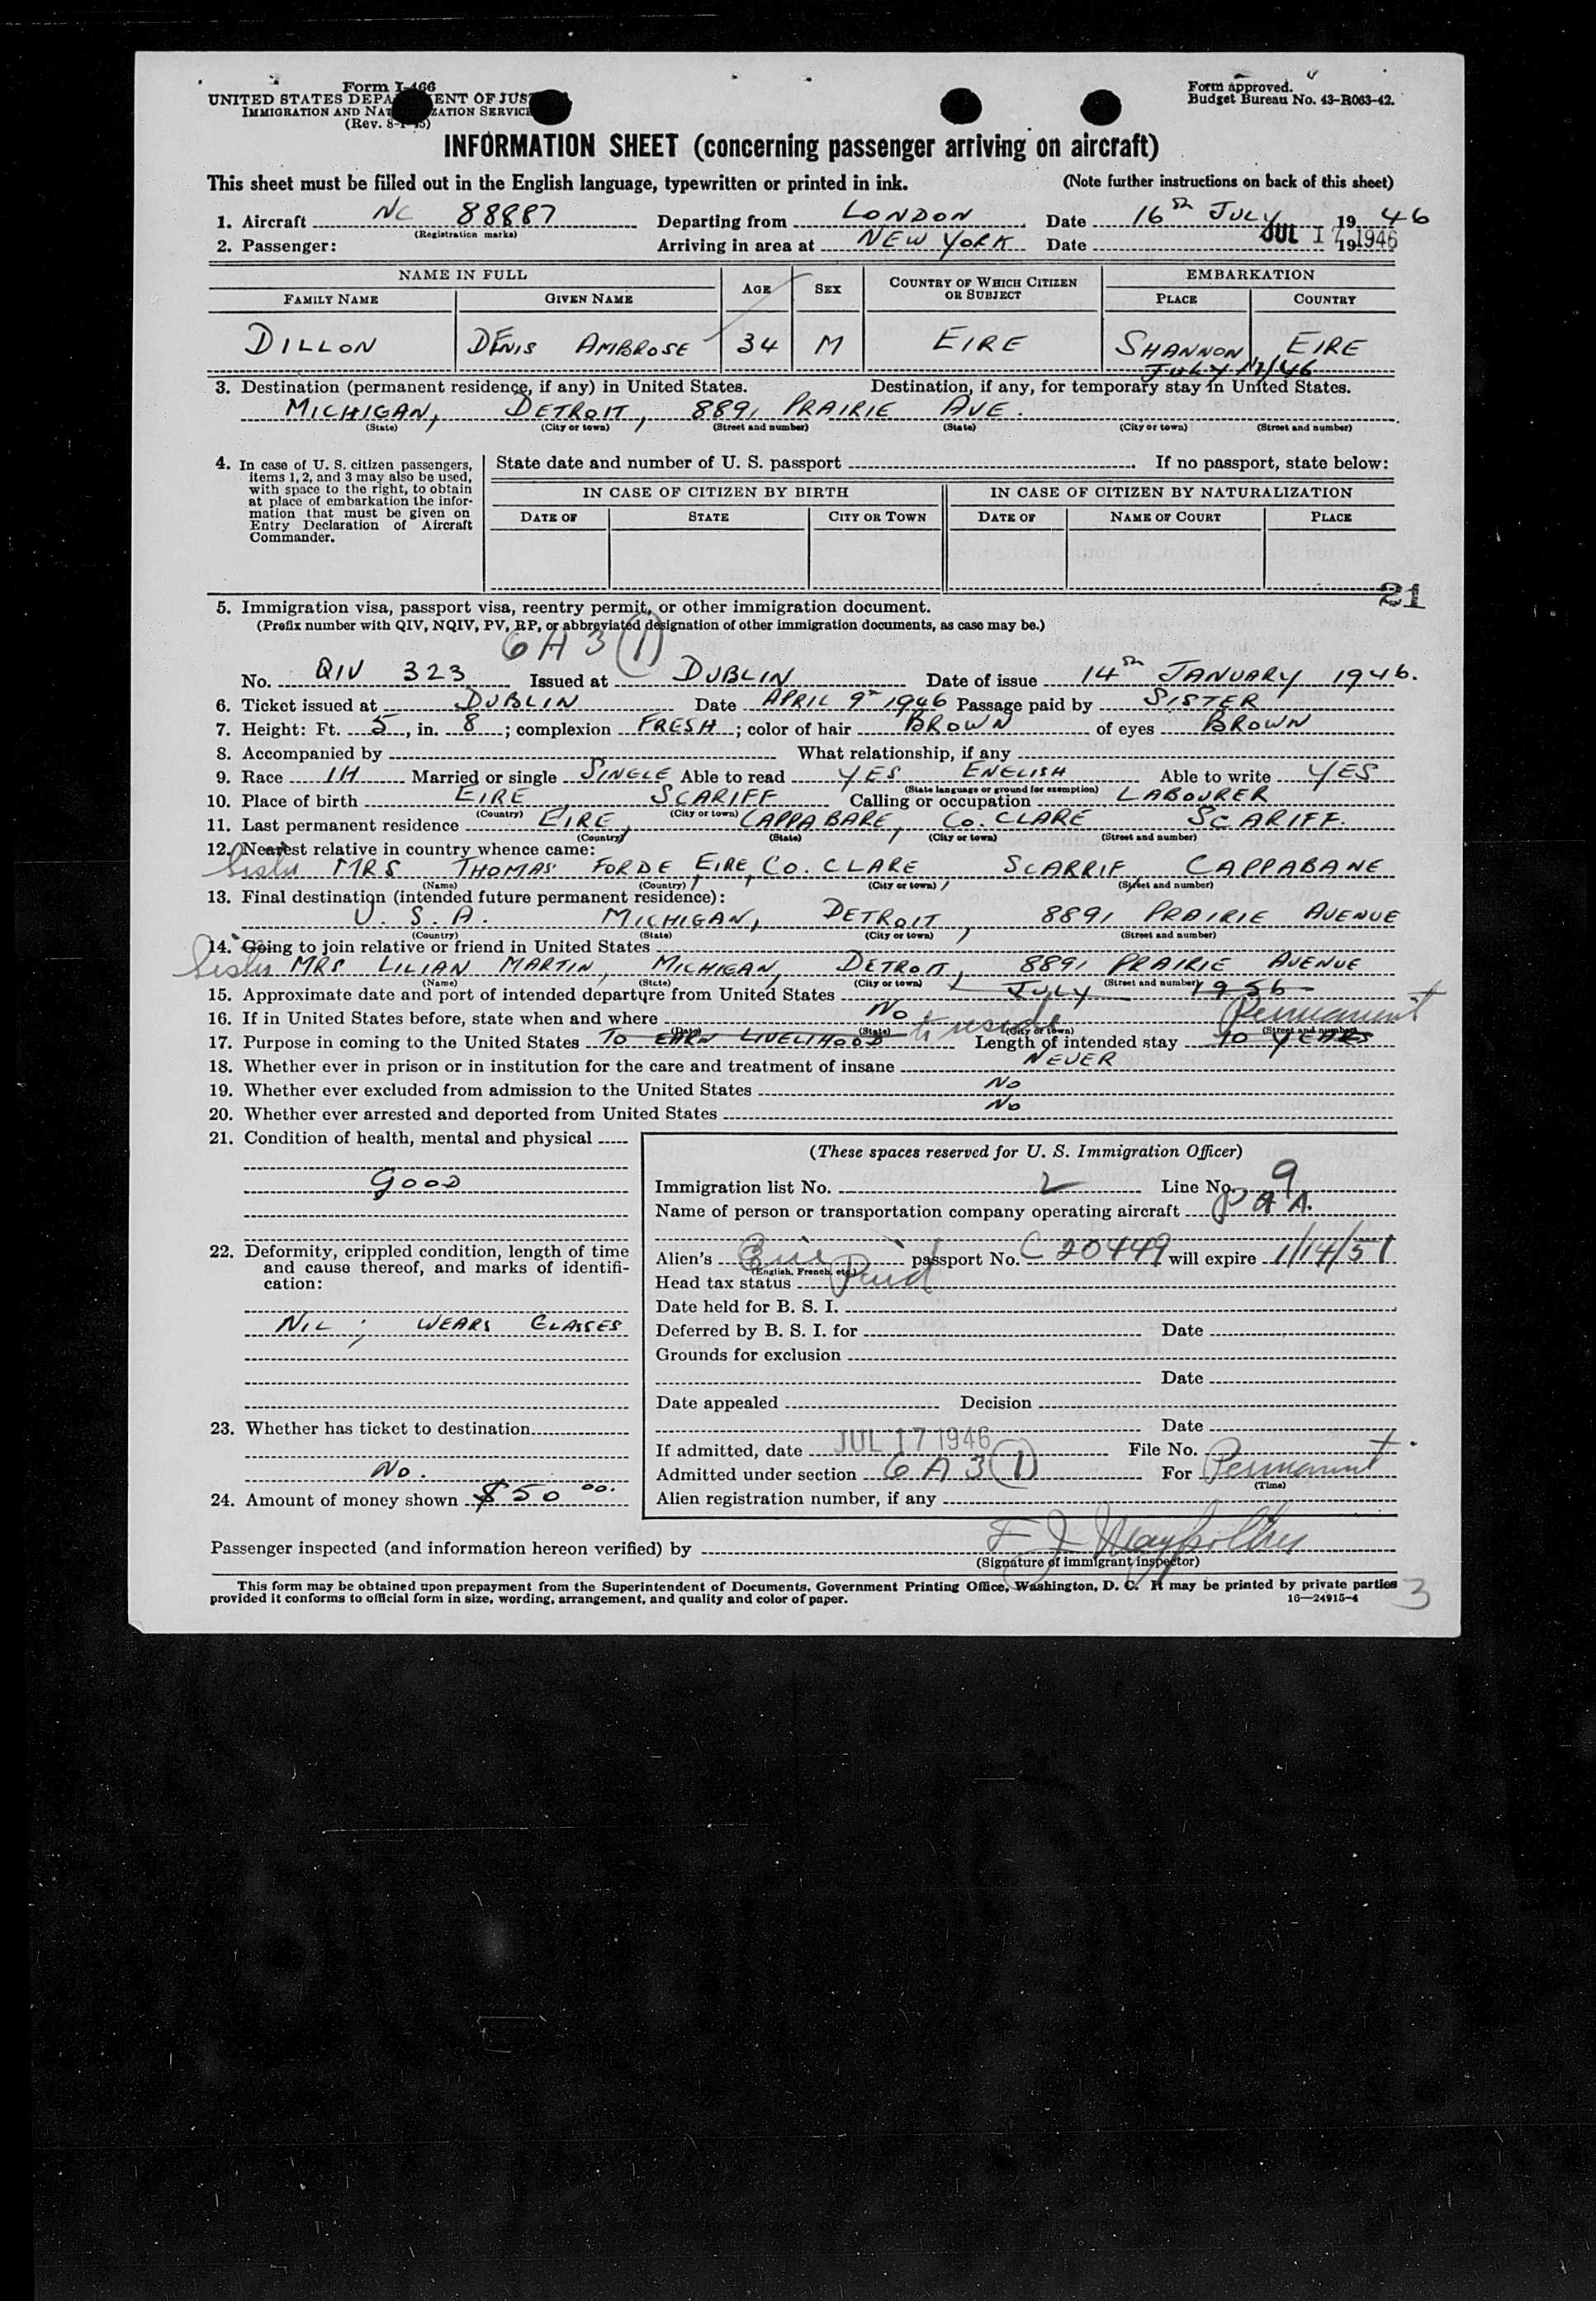 Form I-466
UNITED STATES DEPA ENT OF JUS
IMMIGRATION AND NAT ZATION SERVICE
(Rev. 8-1-45)
Form approved.
Budget Bureau No. 43-R063-42.
INFORMATION SHEET (concerning passenger arriving on aircraft)
This sheet must be filled out in the English language, typewritten or printed in ink. (Note further instructions on back of this sheet)
1. Aircraft NC 88887 Departing from LONDON Date 16th JULY 1946
(Registration marks)
2. Passenger: Arriving in area at NEW YORK Date JUL 17 19 1946
NAME IN FULL AGE SEX COUNTRY OF WHICH CITIZEN OR SUBJECT EMBARKATION
FAMILY NAME GIVEN NAME PLACE COUNTRY
DILLON DENIS AMBROSE 34 M EIRE SHANNON EIRE
JULY 17/46
3. Destination (permanent residence, if any) in United States. Destination, if any, for temporary stay in United States.
MICHIGAN, DETROIT, 8891 PRAIRIE AVE.
(State) (City or town) (Street and number) (State) (City or town) (Street and number)
4. In case of U. S. citizen passengers, items 1, 2, and 3 may also be used, with space to the right, to obtain at place of embarkation the information that must be given on Entry Declaration of Aircraft Commander.
State date and number of U. S. passport . If no passport, state below:
IN CASE OF CITIZEN BY BIRTH IN CASE OF CITIZEN BY NATURALIZATION
DATE OF STATE CITY OR TOWN DATE OF NAME OF COURT PLACE
21
5. Immigration visa, passport visa, reentry permit, or other immigration document.
(Prefix number with QIV, NQIV, PV, RP, or abbreviated designation of other immigration documents, as case may be.)
6 A 3 (1)
No. QIV 323 Issued at DUBLIN Date of issue 14th JANUARY 1946.
6. Ticket issued at DUBLIN Date APRIL 9th 1946 Passage paid by SISTER
7. Height: Ft. 5, in. 8; complexion FRESH; color of hair BROWN of eyes BROWN
8. Accompanied by What relationship, if any
9. Race IH Married or single SINGLE Able to read YES ENGLISH Able to write YES
(State language or ground for exemption)
10. Place of birth EIRE, SCARIFF Calling or occupation LABOURER
(Country) (City or town)
11. Last permanent residence EIRE, CAPPABARE, CO. CLARE SCARIFF.
(Country) (State) (City or town) (Street and number)
12. Nearest relative in country whence came:
Sister MRS THOMAS FORDE, EIRE, CO. CLARE SCARRIF CAPPABANE
(Name) (Country) (City or town) (Street and number)
13. Final destination (intended future permanent residence):
U. S. A. MICHIGAN, DETROIT, 8891 PRAIRIE AVENUE
(Country) (State) (City or town) (Street and number)
14. Going to join relative or friend in United States
Sister MRS LILIAN MARTIN, MICHIGAN, DETROIT, 8891 PRAIRIE AVENUE
(Name) (State) (City or town) (Street and number)
15. Approximate date and port of intended departure from United States JULY 1956
16. If in United States before, state when and where NO Permanent
(Date) (State) (City or town) (Street and number)
17. Purpose in coming to the United States TO EARN LIVELIHOOD to reside Length of intended stay 10 YEARS
18. Whether ever in prison or in institution for the care and treatment of insane NEVER
19. Whether ever excluded from admission to the United States NO
20. Whether ever arrested and deported from United States NO
21. Condition of health, mental and physical
GOOD
22. Deformity, crippled condition, length of time and cause thereof, and marks of identification:
NIL; WEARS GLASSES
23. Whether has ticket to destination
NO.
24. Amount of money shown $50 00.
(These spaces reserved for U. S. Immigration Officer)
Immigration list No. 2 Line No. 9
Name of person or transportation company operating aircraft P A A.
Alien's Eire passport No. C 20449 will expire 1/14/51
(English, French, etc.)
Head tax status Paid
Date held for B. S. I.
Deferred by B. S. I. for Date
Grounds for exclusion
Date
Date appealed Decision
Date
If admitted, date JUL 17 1946 File No.
Admitted under section 6 A 3 (1) For Permanent
(Time)
Alien registration number, if any
Passenger inspected (and information hereon verified) by F J
(Signature of immigrant inspector)
This form may be obtained upon prepayment from the Superintendent of Documents, Government Printing Office, Washington, D. C. It may be printed by private parties
provided it conforms to official form in size, wording, arrangement, and quality and color of paper. 16—24915-4
3